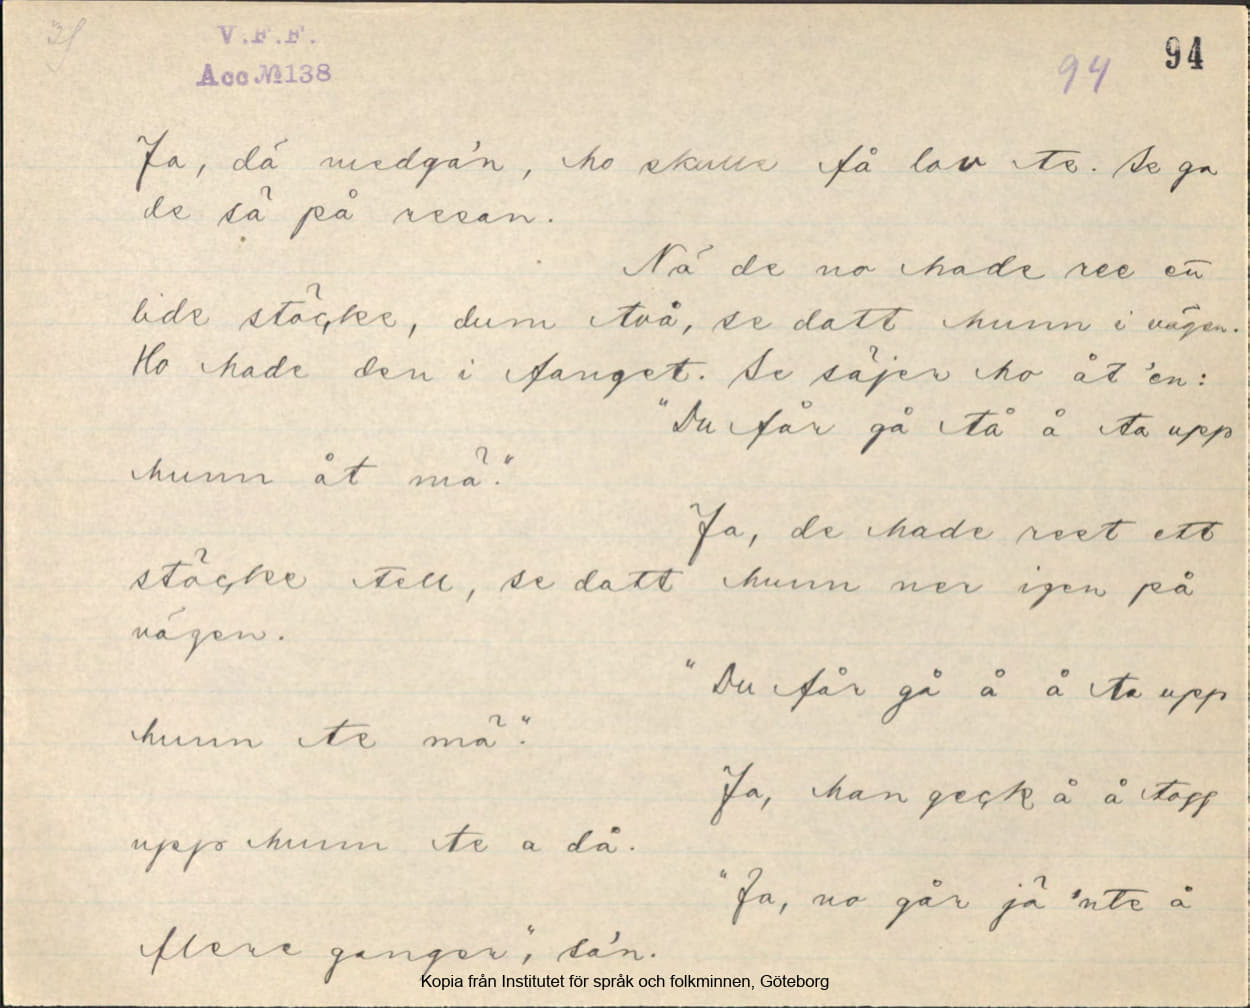 V.F.F.
Acc.№138
94
94
Ja, dá medga'n, ho skulle få lov te. Se ga
de sä på resan.
Nä de no hade ree en
lide stöcke, dum två, se datt hunn i vägen.
Ho hade den i fanget. Se säjer ho åt 'en:
"Du får gå tå å ta upp
hunn åt mä."
Ja, de hade rest ett
stöcke tell, se datt hunn ner igen på
vägen.
"Du får gå å å ta upp
hunn te mä."
Ja, han geck å å togg
upp hunn te a då.
"Ja, no går jä 'nte å
flere ganger", sa'n.
Kopia från Institutet för språk och folkminnen, Göteborg